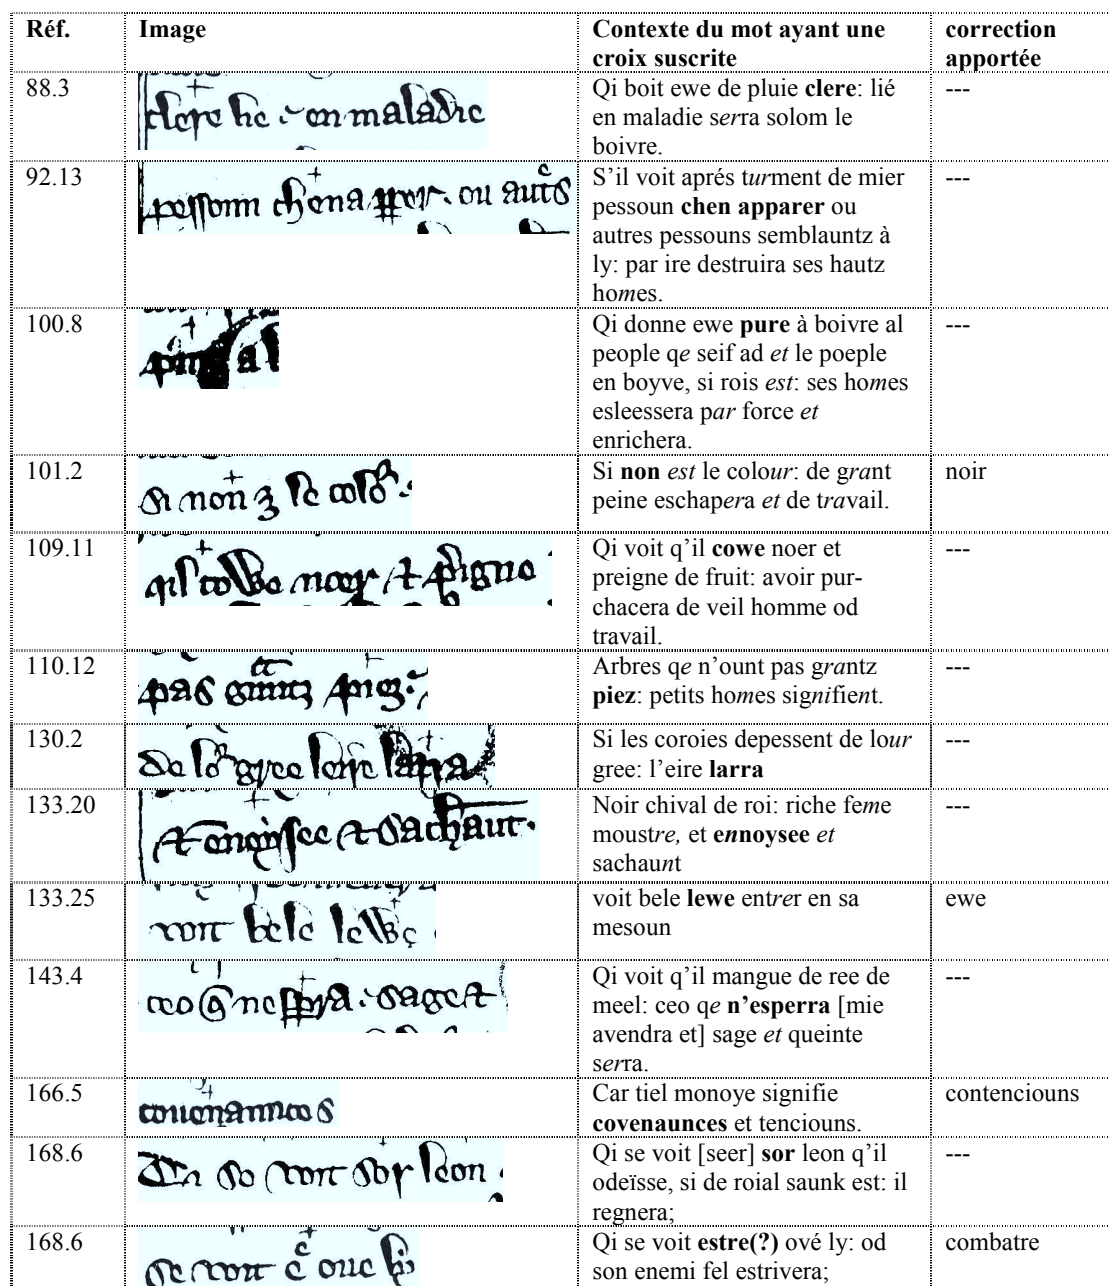 Réf. Image Contexte du mot ayant une croix suscrite correction apportée
88.3
clere lie en maladie
Qi boit ewe de pluie clere: lié
en maladie serra solom le
boivre.
---
92.13
pessoun chen apper ou aut's
S'il voit aprés turment de mier
pessoun chen apparer ou
autres pessouns semblauntz à
ly: par ire destruira ses hautz
homes.
---
100.8
Qi donne ewe pure à boivre al
people qe seif ad et le poeple
en boyve, si rois est: ses homes
esleessera par force et
enrichera.
---
101.2
Si non le colo
Si non est le colour: de grant
peine eschapera et de travail.
noir
109.11
qil cowe noer
Qi voit q'il cowe noer et
preigne de fruit: avoir pur-
chacera de veil homme od
travail.
---
110.12
pas piez
Arbres qe n'ount pas grantz
piez: petits homes signifient.
---
130.2
de gree leire larra
Si les coroies depessent de lour
gree: l'eire larra
---
133.20
Noir chival de roi: riche feme
moustre, et ennoysee et
sachaunt
---
133.25
voit bele lewe
voit bele lewe entrer en sa
mesoun
ewe
143.4
ceo sage
Qi voit q'il mangue de ree de
meel: ceo qe n'esperra [mie
avendra et] sage et queinte
serra.
---
166.5
couenaunces
Car tiel monoye signifie
covenaunces et tenciouns.
contenciouns
168.6
Qi se voit sor leon
Qi se voit [seer] sor leon q'il
odeïsse, si de roial saunk est: il
regnera;
---
168.6
se voit oue
Qi se voit estre(?) ové ly: od
son enemi fel estrivera;
combatre